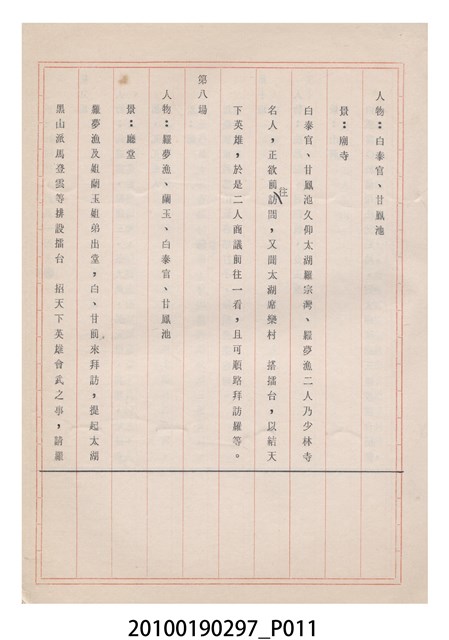 人物：白泰官、甘鳳池
景：廟寺
白泰官、甘鳳池久仰太湖羅宗灣、羅夢漁二人乃少林寺
名人，正欲前往訪間，又聞太湖席欒村　搭擂台，以結天
下英雄，於是二人商議前往一看，且可順路拜訪羅等。
第八場
人物：羅夢漁、蘭玉、白泰官、甘鳳池
景：廳堂
羅夢漁及姐蘭玉姐弟出堂，白、甘前來拜訪，提起太湖
黑山派馬登雲等排設擂台　招天下英雄會武之事，請羅
20100190297_P011